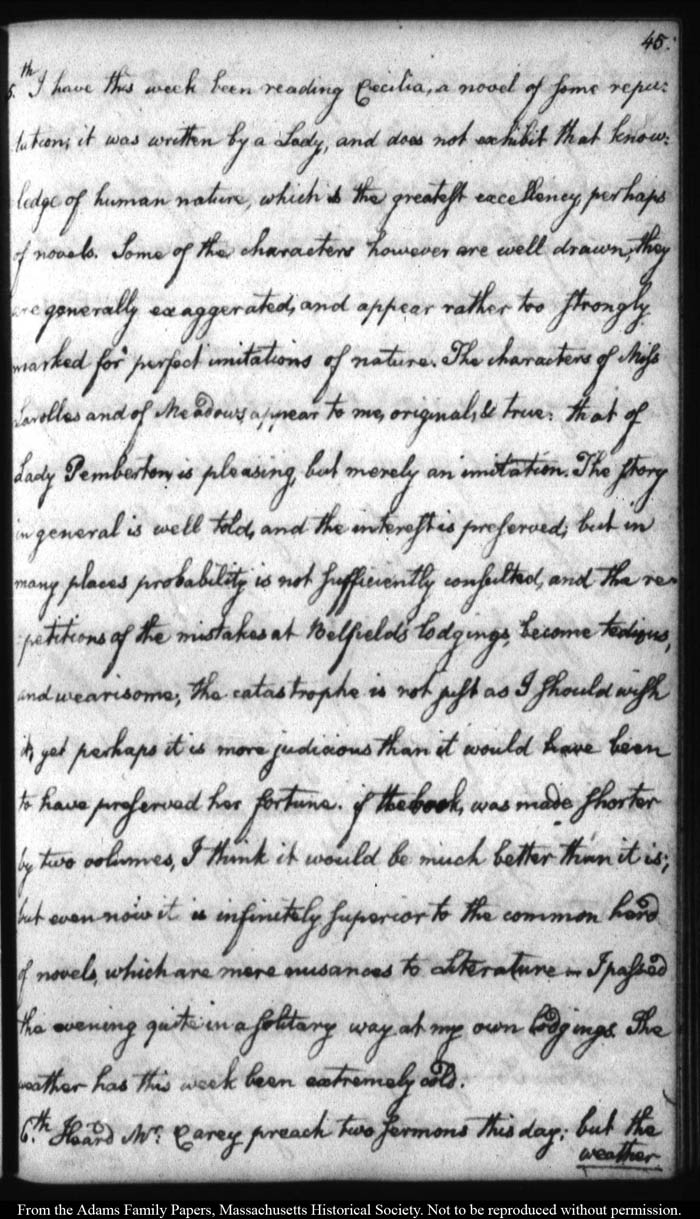 45.
5.th I have this week been reading Cecilia, a novel of some repu:
tation; it was written by a Lady, and does not exhibit that know:
ledge of human nature, which is the greatest excellency perhaps
of novels. Some of the characters however are well drawn, they
are generally exaggerated, and appear rather too strongly
marked for perfect imitations of nature. The characters of Miss
Larolles and of Meadows, appear to me, originals, & true: that of
Lady Pemberton, is pleasing, but merely an imitation. The story
in general is well told, and the interest is preserved; but in
many places probability is not sufficiently consulted, and the re:
:petitions of the mistakes at Belfield's lodgings, become tedious,
and wearisome; the catastrophe is not just as I should wish
it, yet perhaps it is more judicious than it would have been
to have preserved her fortune. if the book, was made shorter
by two volumes, I think it would be much better than it is;
but even now it is infinitely superior to the common herd
of novels, which are mere nusances to Literature — I passed
the evening quite in a solitary way at my own lodgings. The
weather has this week been extremely cold.
6.th Heard Mr: Carey preach two sermons this day; but the
weather
From the Adams Family Papers, Massachusetts Historical Society. Not to be reproduced without permission.